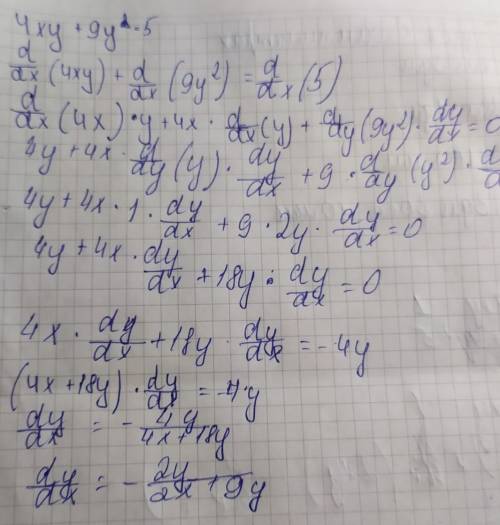 4xy + 9y² = 5
d/dx (4xy) + d/dx (9y²) = d/dx (5)
d/dx (4x) · y + 4x · d/dx (y) + d/dy (9y²) · dy/dx = 0
4y + 4x · d/dy (y) · dy/dx + 9 · d/dy (y²) · d
4y + 4x · 1 · dy/dx + 9 · 2y · dy/dx = 0
4y + 4x · dy/dx + 18y · dy/dx = 0
4x · dy/dx + 18y · dy/dx = -4y
(4x + 18y) · dy/dx = -4y
dy/dx = - 4y/4x + 18y
dy/dx = - 2y/2x + 9y